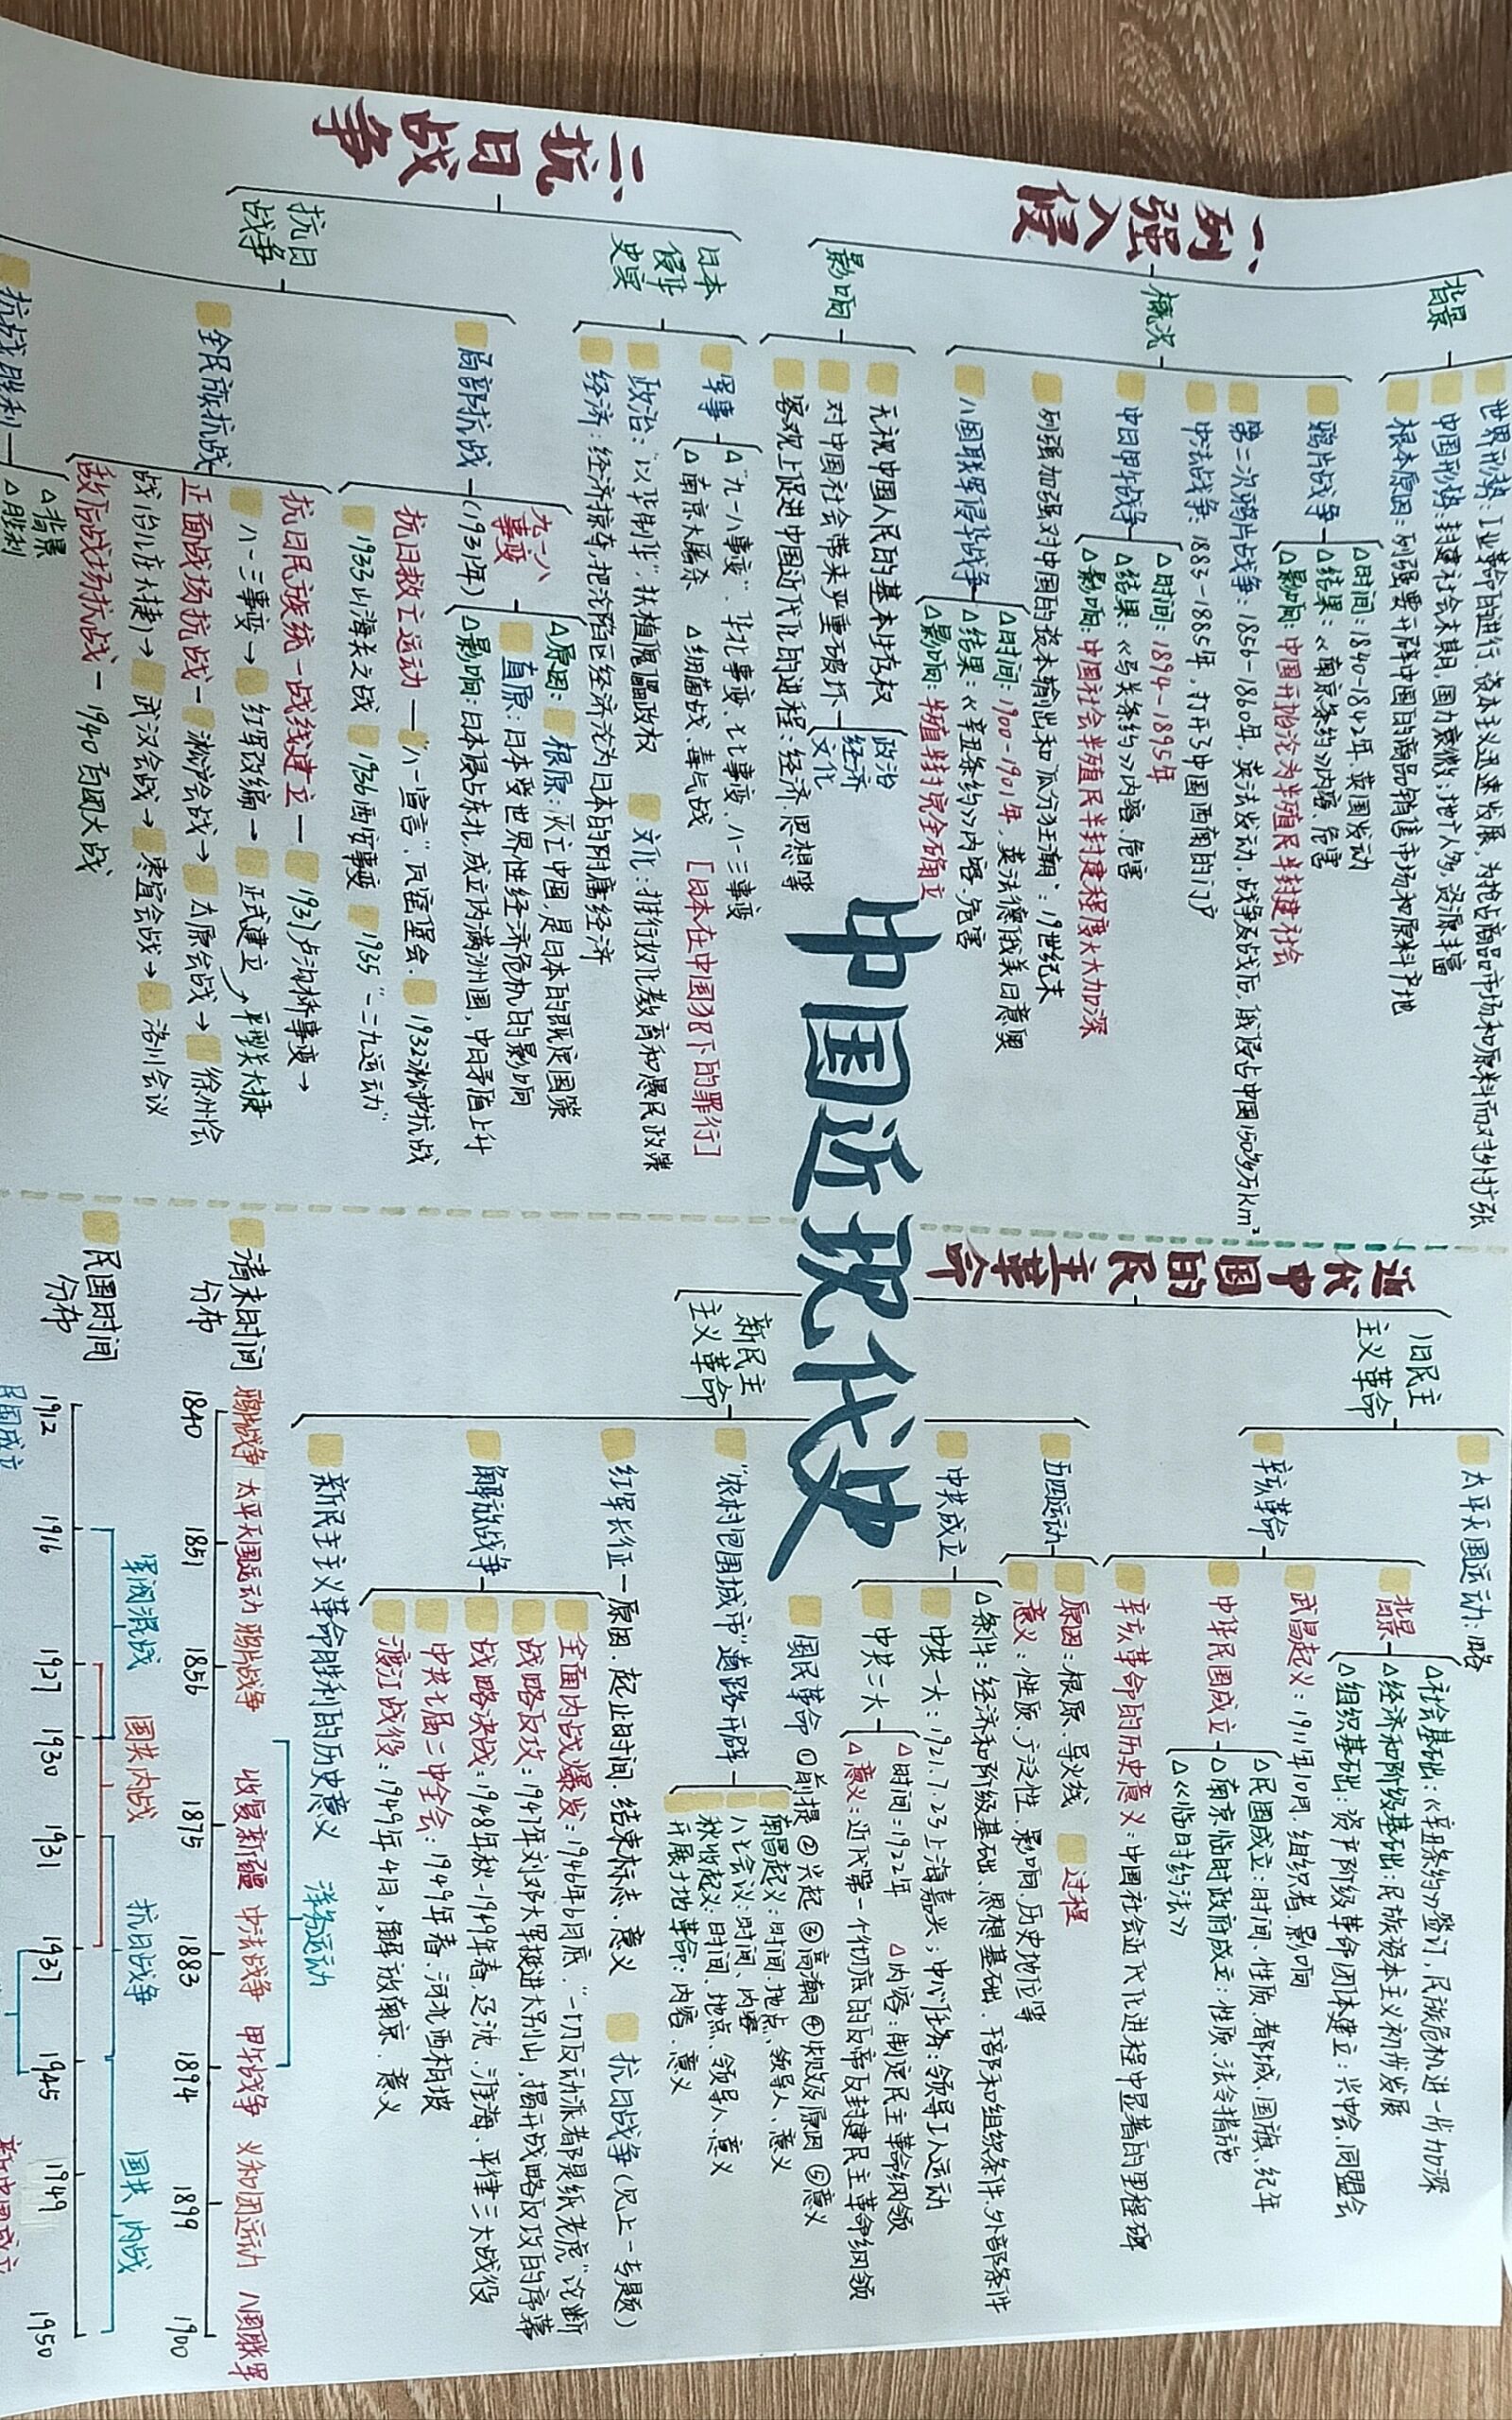 中国近现代史
一、列强入侵
背景
世界形势:工业革命的进行,资本主义迅速发展,为抢占商品市场和原料而对外扩张
中国形势:封建社会末期,国力衰微;地广人多,资源丰富
根本原因:列强要开辟中国的商品销售市场和原料产地
概况
鸦片战争
△时间:1840-1842年,英国发动
△结果:《南京条约》内容、危害
△影响:中国开始沦为半殖民半封建社会
第二次鸦片战争:1856-1860年,英法发动,战争及战后,俄侵占中国150多万km²
中法战争:1883-1885年,打开了中国西南的门户
中日甲午战争
△时间:1894-1895年
△结果:《马关条约》内容、危害
△影响:中国社会半殖民半封建程度大大加深
列强加强对中国的资本输出和"瓜分狂潮":19世纪末
八国联军侵华战争
△时间:1900-1901年,英法德俄美日意奥
△结果:《辛丑条约》内容、危害
△影响:半殖半封完全确立
影响
无视中国人民的基本生存权
对中国社会带来严重破坏
政治
经济
文化
客观上促进中国近代化的进程:经济、思想等
二、抗日战争
日本侵华史实
军事
△"九一八事变"、华北事变、七七事变、八一三事变
△南京大屠杀 △细菌战、毒气战 [日本在中国犯下的罪行]
政治:"以华制华",扶植傀儡政权 文化:推行奴化教育和愚民政策
经济:经济掠夺,把沦陷区经济沦为日本的附庸经济
抗日战争
局部抗战
(1931年)
九一八事变
△原因: 根原:灭亡中国,是日本的既定国策
直原:日本受世界性经济危机的影响
△影响:日本侵占东北,成立伪满洲国,中日矛盾上升
抗日救亡运动— "八一宣言"、瓦窑堡会、 1932淞沪抗战
1933山海关之战 1936西安事变 1935"一二九运动"
全民族抗战
抗日民族统一战线建立— 1937卢沟桥事变→
八一三事变→ 红军改编→ 正式建立 平型关大捷
正面战场抗战— 淞沪会战→ 太原会战→ 徐州会
战(台儿庄大捷)→ 武汉会战→ 枣宜会战→ 洛川会议
敌后战场抗战—1940百团大战
抗战胜利
△背景
△胜利
近代中国的民主革命
旧民主主义革命
太平天国运动:略
辛亥革命
背景
△社会基础:《辛丑条约》签订,民族危机进一步加深
△经济和阶级基础:民族资本主义初步发展
△组织基础:资产阶级革命团体建立:兴中会、同盟会
武昌起义:1911年10月,组织者、影响
中华民国成立
△民国成立:时间、性质、都城、国旗、纪年
△南京临时政府成立:性质、法令措施
△《临时约法》
辛亥革命的历史意义:中国社会近代化进程中显著的里程碑
新民主主义革命
五四运动
原因:根原、导火线 过程
意义:性质、广泛性、影响、历史地位等
中共成立
△条件:经济和阶级基础、思想基础、干部和组织条件、外部条件
中共一大:1921.7.23上海嘉兴;中心任务:领导工人运动
中共二大
△时间:1922年 △内容:制定民主革命纲领
△意义:近代第一个彻底的反帝反封建民主革命纲领
国民革命 ①前提 ②兴起 ③高潮 ④失败及原因 ⑤意义
"农村包围城市"道路开辟
南昌起义:时间、地点、领导人、意义
八七会议:时间、内容
秋收起义:时间、地点、领导人、意义
开展土地革命:内容、意义
红军长征—原因、起止时间、结束标志、意义 抗日战争(见上一专题)
解放战争
全面内战爆发:1946年6月底,"一切反动派都是纸老虎"论断
战略反攻:1947年刘邓大军挺进大别山,揭开战略反攻的序幕
战略决战:1948年秋-1949年春,辽沈、淮海、平津三大战役
中共七届二中全会:1949年春、河北西柏坡
渡江战役:1949年4月,解放南京、意义
新民主主义革命胜利的历史意义
洋务运动
清末时间分布
鸦片战争 太平天国运动 鸦片战争 收复新疆 中法战争 甲午战争 义和团运动 八国联军
1840 1851 1856 1875 1883 1894 1899 1900
民国时间分布
军阀混战 国共内战 抗日战争 国共内战
1912 1916 1927 1930 1931 1937 1945 1949 1950
民国成立